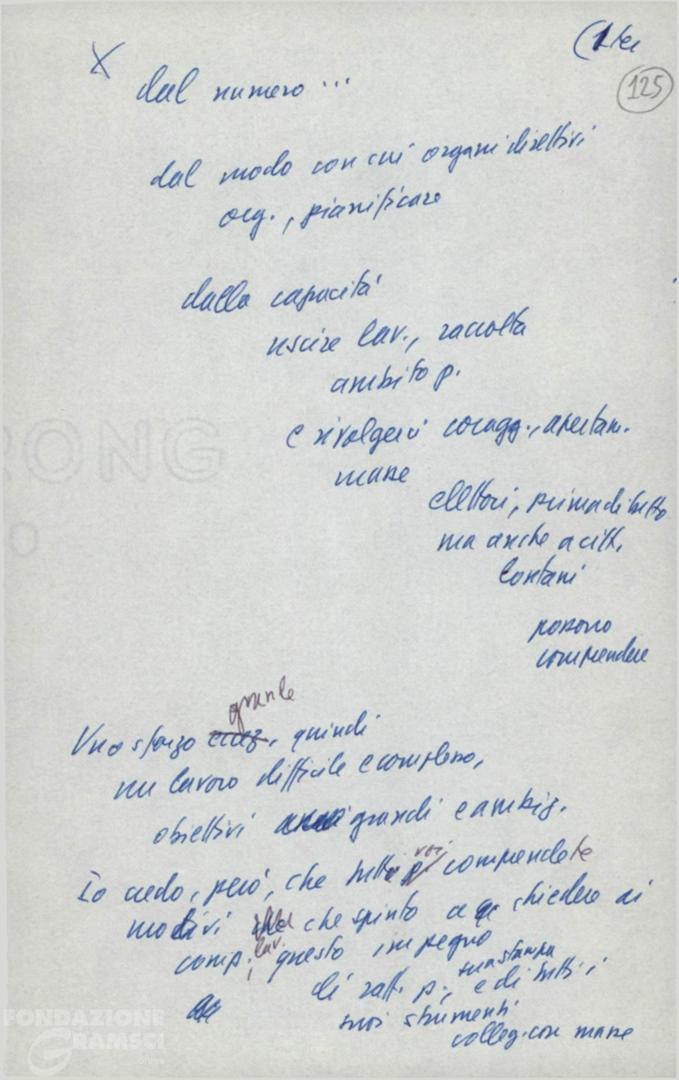 (1 ter
125
X
dal numero ...
dal modo con cui organi direttivi
org., pianificare
dalla capacità
uscire lav., raccolta
ambito p.
e rivolgersi coragg., apertam.
masse
elettori, prima di tutto
ma anche a citt.
lontani
possono
comprendere
grande
Uno sforzo ecc., quindi
un lavoro difficile e complesso,
obiettivi grandi e ambiz.
voi
Io credo, però, che tutti comprendete
motivi che spinto a chiedere ai
comp., lav. questo impegno
di raff. p., sua stampa e di tutti i
suoi strumenti
colleg. con masse
RONG
O
FONDAZIONE
GRAMSCI